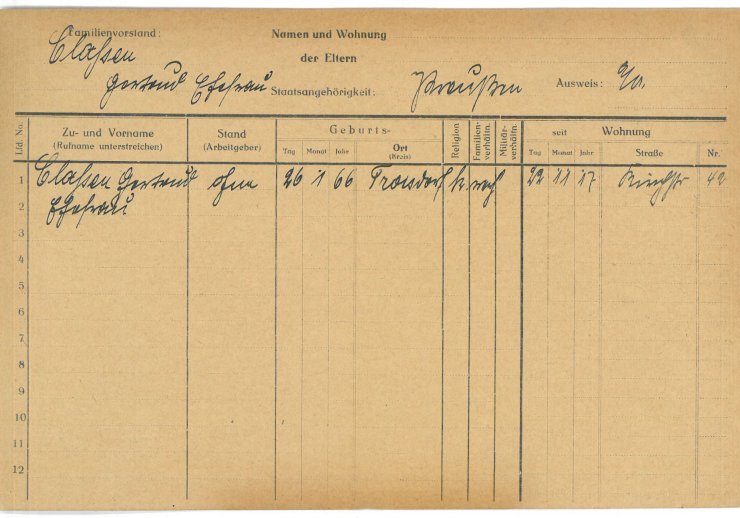 Familienvorstand: Namen und Wohnung
Claßen
der Eltern
Gertrud Ehefrau Staatsangehörigkeit: Preußen Ausweis:
Lfd. No. Zu- und Vorname Stand Geburts- Religion Familien-verhältn. Militär-verhältn. seit Wohnung
(Rufname unterstreichen) (Arbeitgeber) Tag Monat Jahr Ort (Kreis) Tag Monat Jahr Straße Nr.
1 Claßen Gertrud ohne 26 1 66 Troisdorf k 22 11 17 Kirchstr 42
2 Ehefrau
3
4
5
6
7
8
9
10
11
12